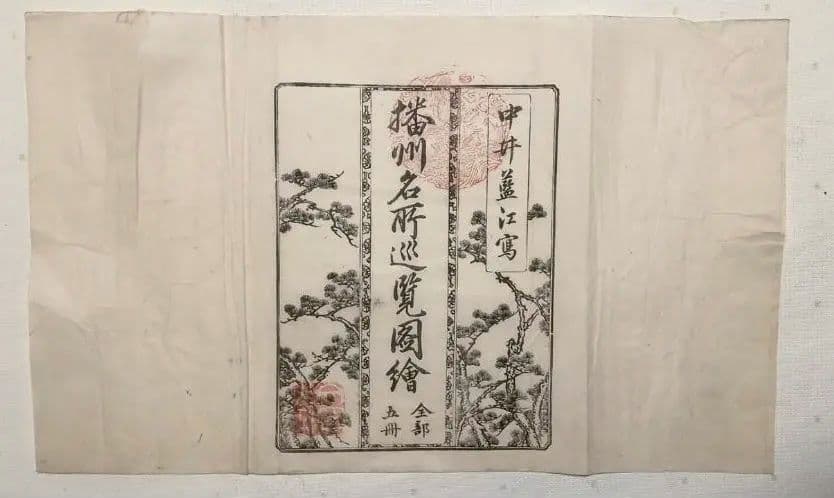 中井藍江寫
播州名所巡覽圖繪
全部
五冊